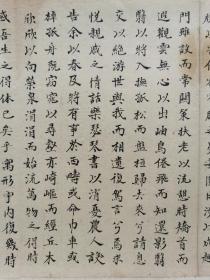 門雖設而常關策扶老以流憩時矯首而
遐觀雲無心以出岫鳥倦飛而知還影翳
翳以將入撫孤松而盤桓歸去來兮請息
交以絕遊世與我而相遺復駕言兮焉求
悅親戚之情話樂琴書以消憂農人談
告余以春及將有事於西疇或命巾車或
棹孤舟既窈窕以尋壑亦崎嶇而經丘木
欣欣以向榮泉涓涓而始流萬物之得時
感吾生之得休已矣乎寓形宇內復幾時